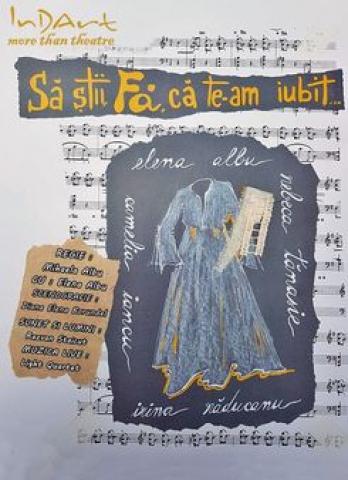 InDArt
more than theatre
Să știi Fă, că te-am iubit...
elena albu
rebeca tănasie
camelia iancu
irina răducanu
REGIE :
Mihaela Albu
CU : Elena Albu
SCENOGRAFIE :
Diana Elena Korundel
SUNET SI LUMINI :
Razvan Staicut
MUZICA LIVE :
Light Quartet